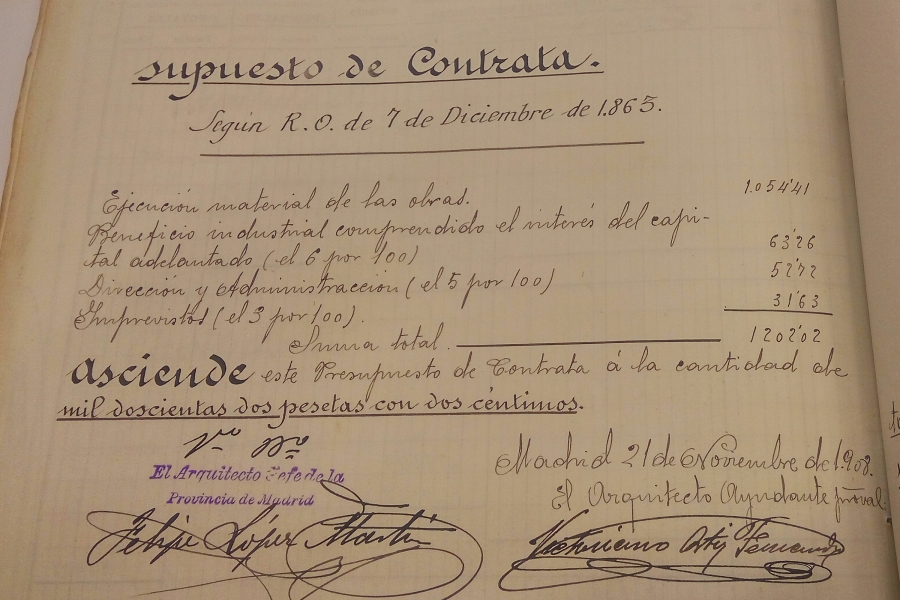 supuesto de Contrata.
Según R. O. de 7 de Diciembre de 1.865.
Ejecución material de las obras. 1.054'41
Beneficio industrial comprendido el interés del capi-
tal adelantado (el 6 por 100) 63'26
Dirección y Administraccion (el 5 por 100) 52'72
Imprevistos (el 3 por 100). 31'63
Suma total. 1202'02
asciende este Presupuesto de Contrata á la cantidad de
mil doscientas dos pesetas con dos céntimos.
Vº Bº
El Arquitecto Jefe de la
Provincia de Madrid
Felipe López Martín
Madrid 21 de Noviembre de 1.908.
El Arquitecto Ayudante proval.
Victoriano Ortiz Fernandez